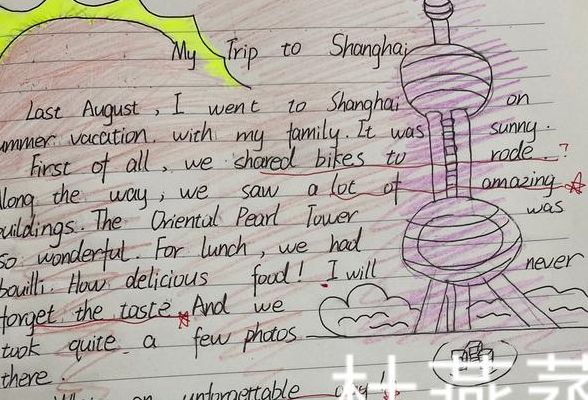 My Trip to Shanghai
Last August, I went to Shanghai on
ummer vacation with my family. It was sunny.
First of all, we shared bikes to rode. ?
long the way, we saw a lot of amazing
uildings. The Oriental Pearl Tower was
so wonderful. For lunch, we had
bouilli. How delicious food! I will never
forget the taste. And we
took quite a few photos
there.
an unforgettable day!
杜燕燕